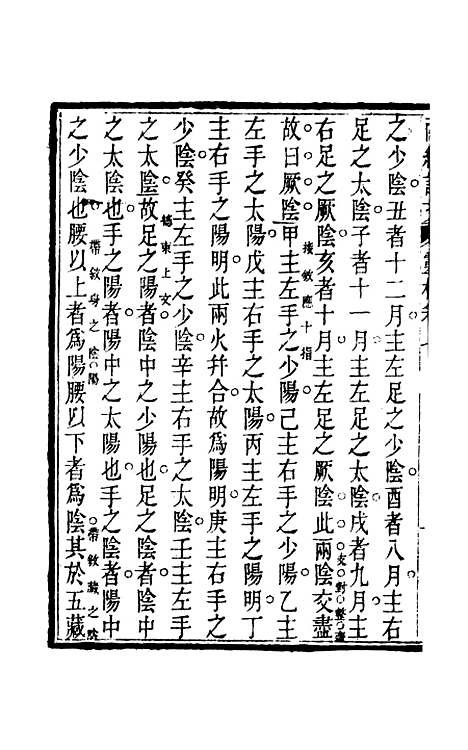 之少陰丑者十二月主左足之少陰酉者八月主右
足之太陰子者十一月主左足之太陰戌者九月主
右足之厥陰亥者十月主左足之厥陰此兩陰交盡
故曰厥陰甲主左手之少陽己主右手之少陽乙主
接敘應十指
左手之太陽戊主右手之太陽丙主左手之陽明丁
主右手之陽明此兩火幷合故爲陽明庚主右手之
少陰癸主左手之少陰辛主右手之太陰壬主左手
之太陰故足之陽者陰中之少陽也足之陰者陰中
總束上文
之太陰也手之陽者陽中之太陽也手之陰者陽中
之少陰也腰以上者爲陽腰以下者爲陰其於五藏
帶敘身之陰陽
帶敘藏之陰